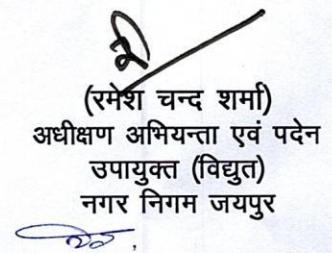 (रमेश चन्द शर्मा)
अधीक्षण अभियन्ता एवं पदेन
उपायुक्त (विद्युत)
नगर निगम जयपुर